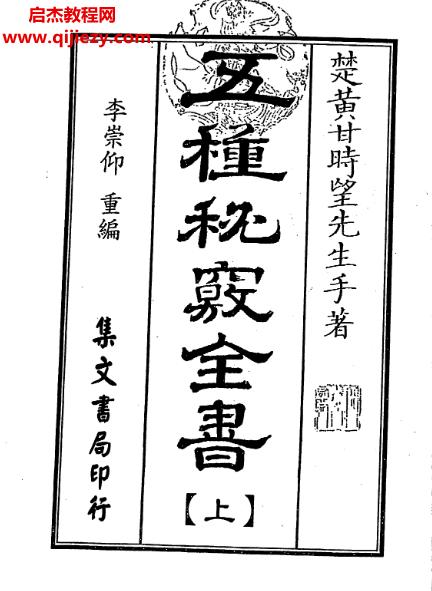 启杰教程网
www.qijiezy.com
楚黃甘時望先生手著
五種秘竅全書
【上】
李崇仰 重編
集文書局印行